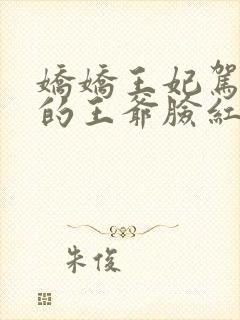 嬌嬌王妃駕
的王爺臉紅
朱俊